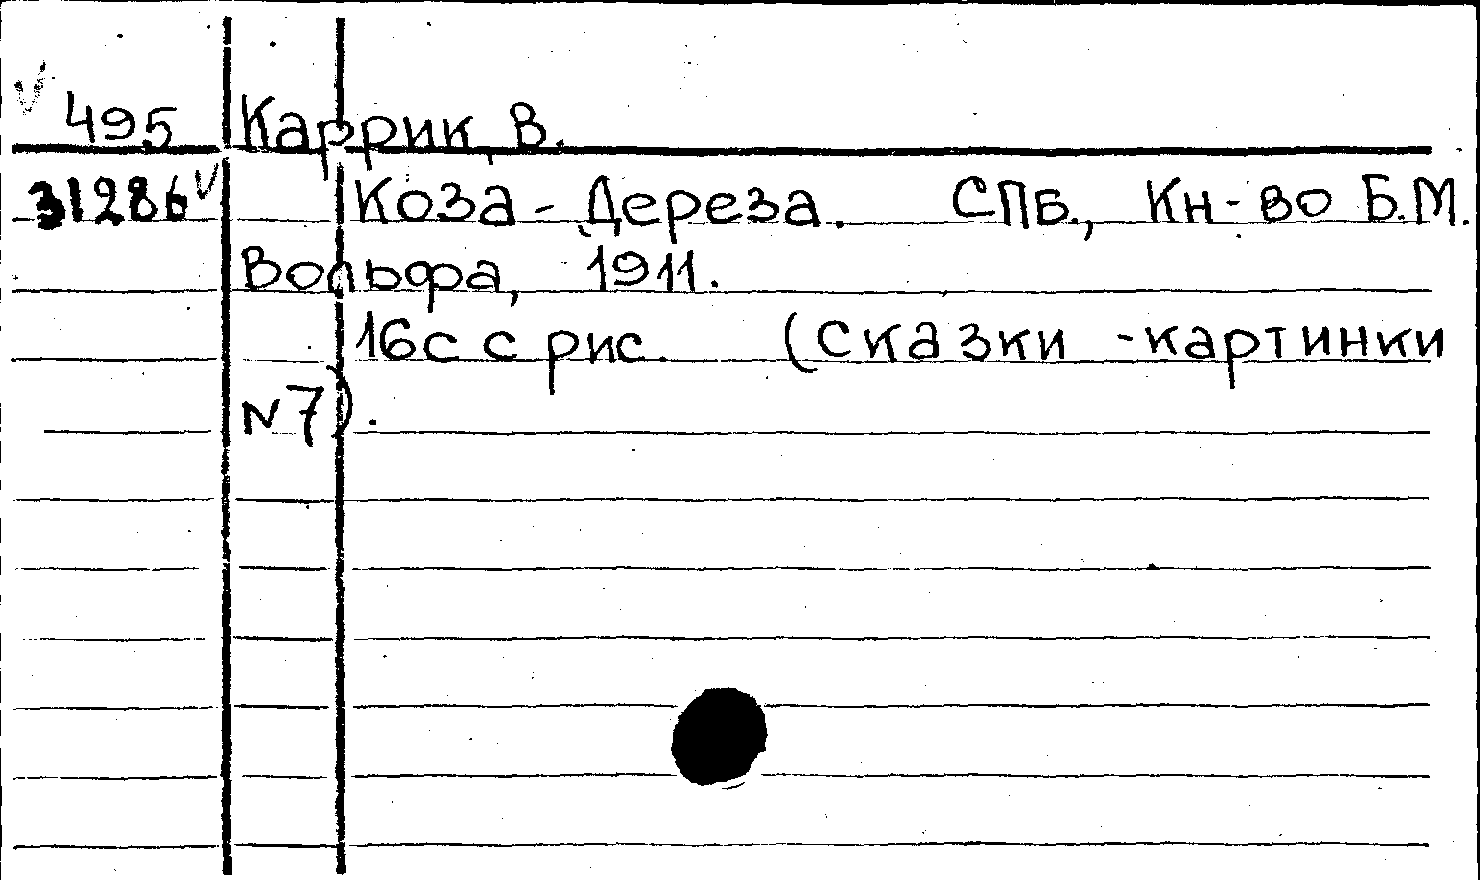 495 Каррик, В.
31286 Коза-Дереза. СПБ., Кн-во Б.М.
Вольфа, 1911.
16с с рис. (Сказки-картинки
N7).